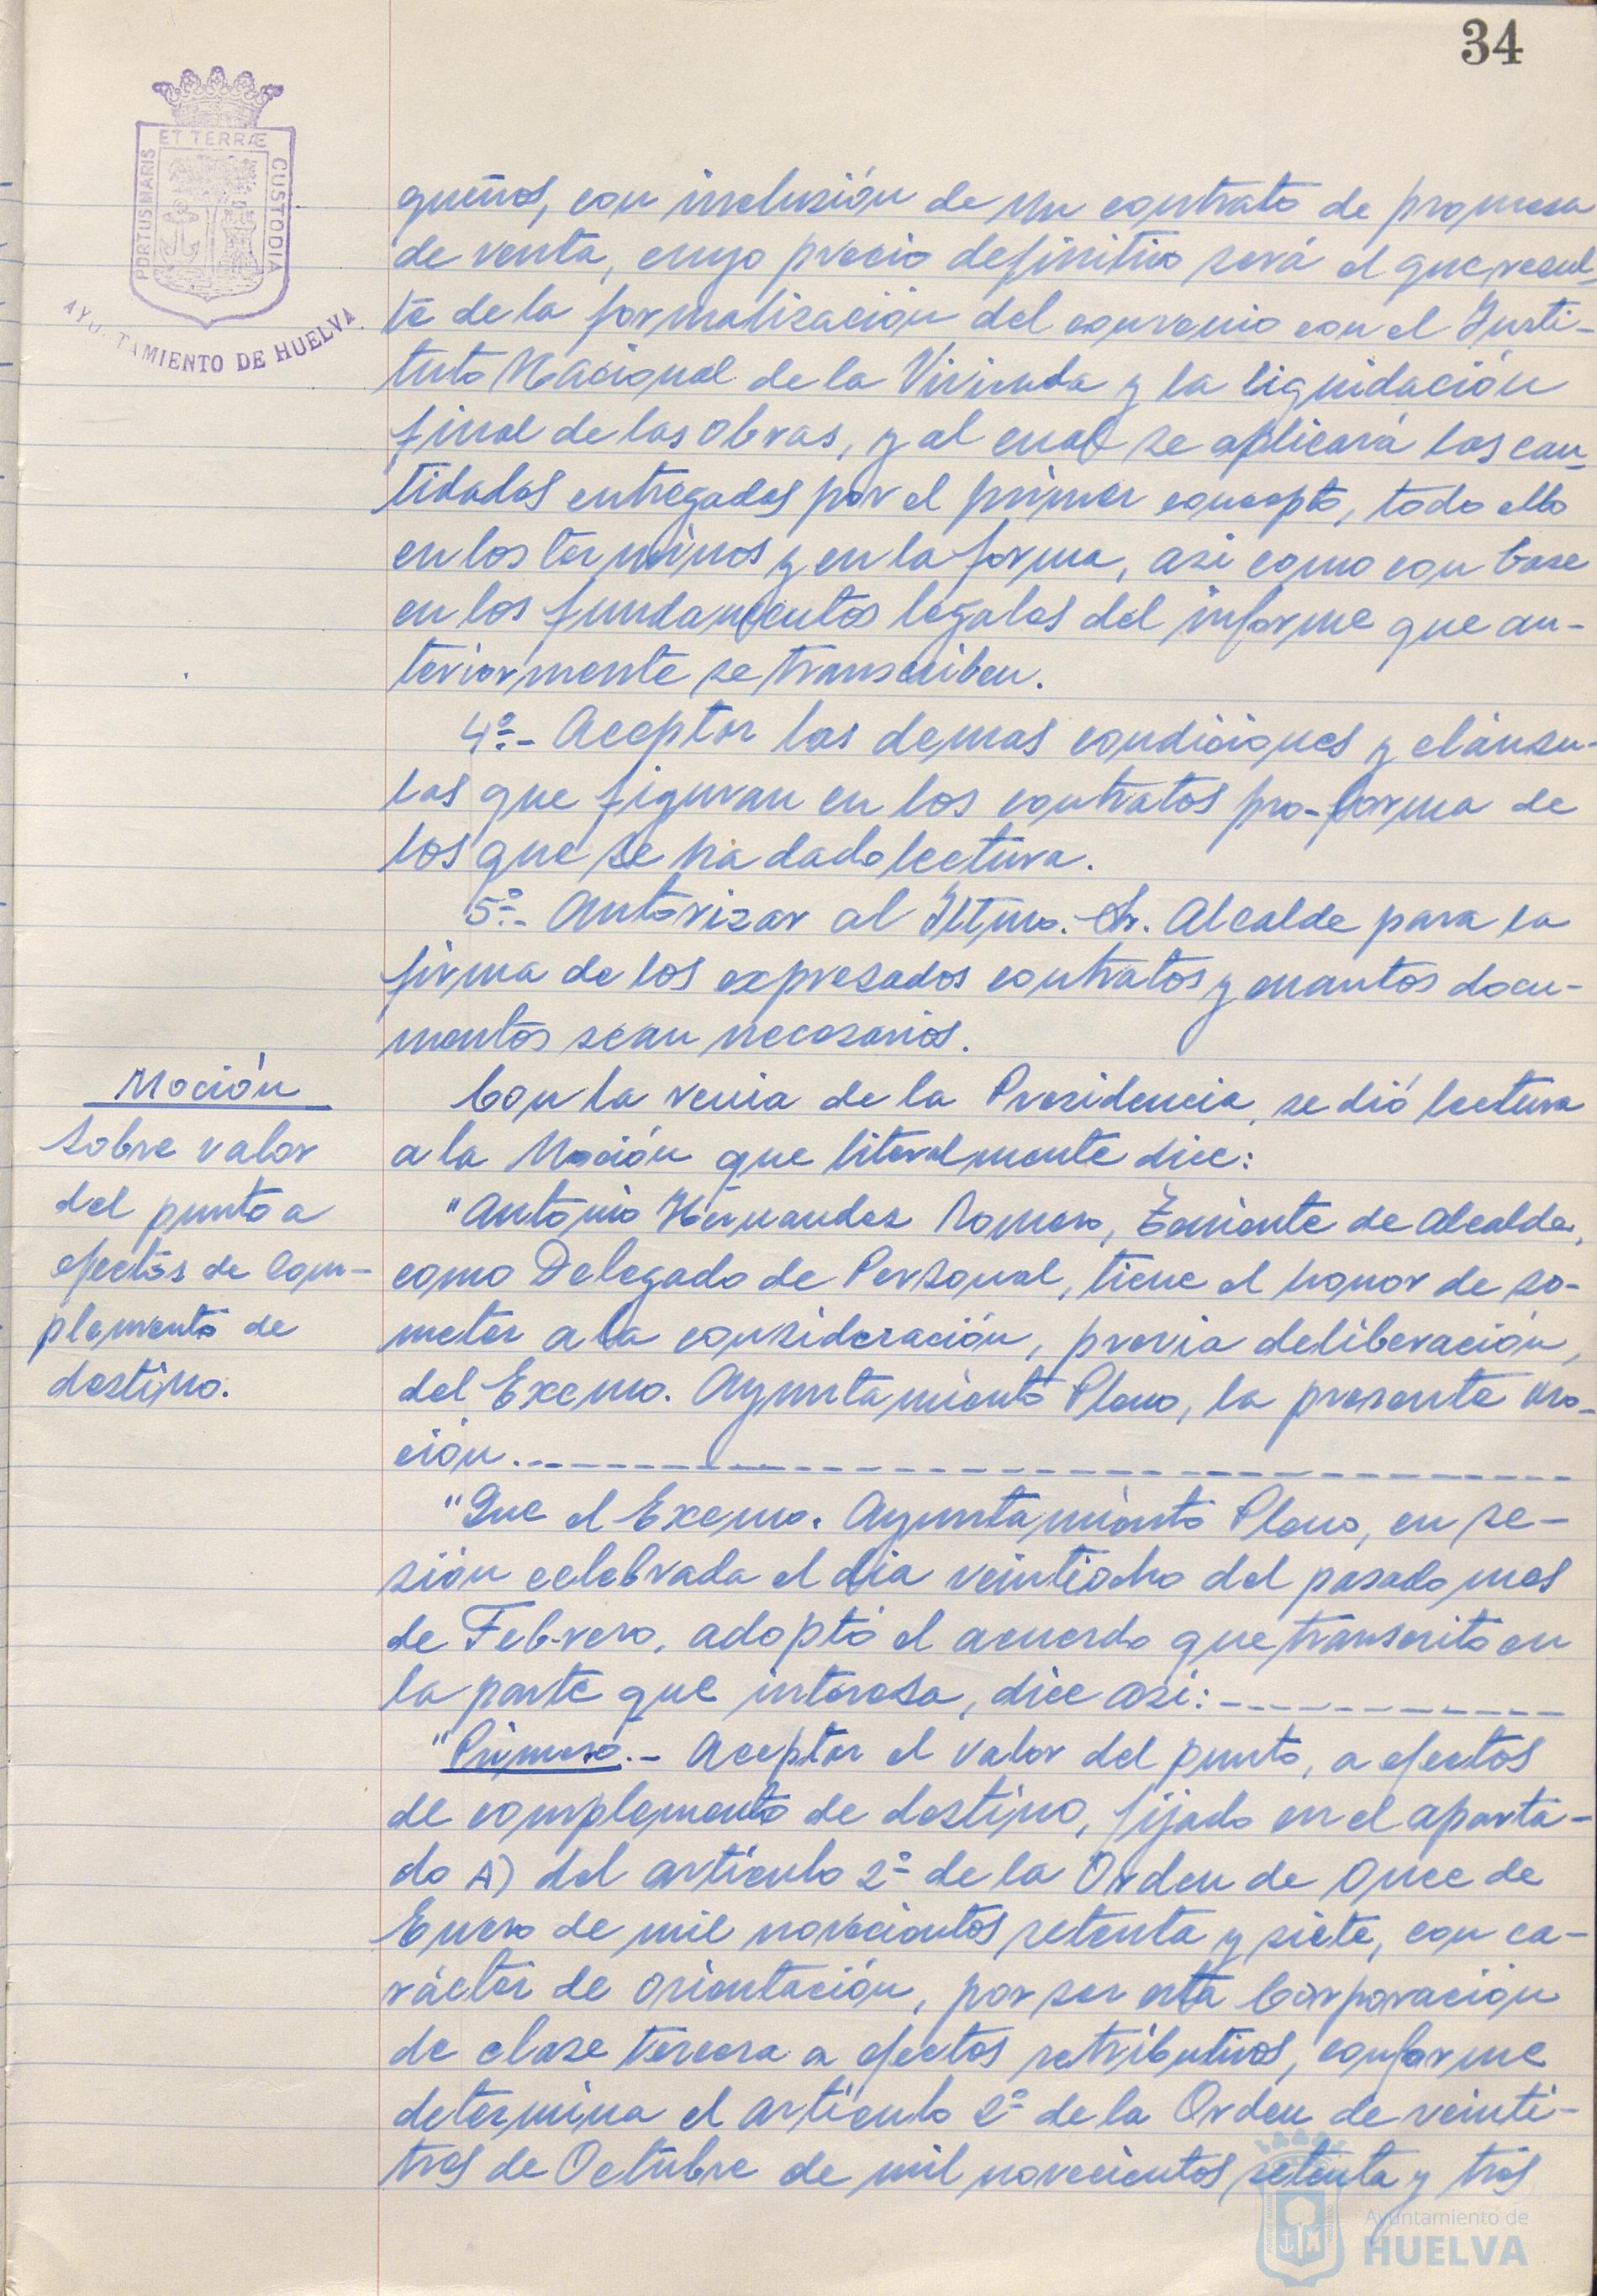 34
ET TERRÆ
PORTUS MARIS
CUSTODIA
AYUNTAMIENTO DE HUELVA
queños, con inclusión de un contrato de promesa
de venta, cuyo precio definitivo será el que resul-
te de la formalización del convenio con el Insti-
tuto Nacional de la Vivienda y la liquidación
final de las obras, y al cual se aplicará las can-
tidades entregadas por el primer concepto, todo ello
en los terminos y en la forma, asi como con base
en los fundamentos legales del informe que an-
teriormente se transcriben.
4º.- Aceptar las demas condiciones y cláusu-
las que figuran en los contratos pro-forma de
los que se ha dado lectura.
5º.- Autorizar al Iltmo. Sr. Alcalde para la
firma de los expresados contratos y cuantos docu-
mentos sean necesarios.
Moción
sobre valor
del punto a
efectos de com-
plemento de
destino.
Con la venia de la Presidencia, se dió lectura
a la Moción que literalmente dice:
"Antonio Hernandez Romero, Teniente de Alcalde,
como Delegado de Personal, tiene el honor de so-
meter a la consideración, previa deliberación,
del Excmo. Ayuntamiento Pleno, la presente Mo-
ción.
"Que el Excmo. Ayuntamiento Pleno, en se-
sión celebrada el dia veintiocho del pasado mes
de Febrero, adoptó el acuerdo que transcrito en
la parte que interesa, dice asi:
"Primero.- Aceptar el valor del punto, a efectos
de complemento de destino, fijado en el aparta-
do A) del articulo 2º de la Orden de Once de
Enero de mil novecientos setenta y siete, con ca-
rácter de orientación, por ser esta Corporación
de clase tercera a efectos retributivos, conforme
determina el articulo 2º de la Orden de veinti-
tres de Octubre de mil novecientos setenta y tres
Ayuntamiento de
HUELVA